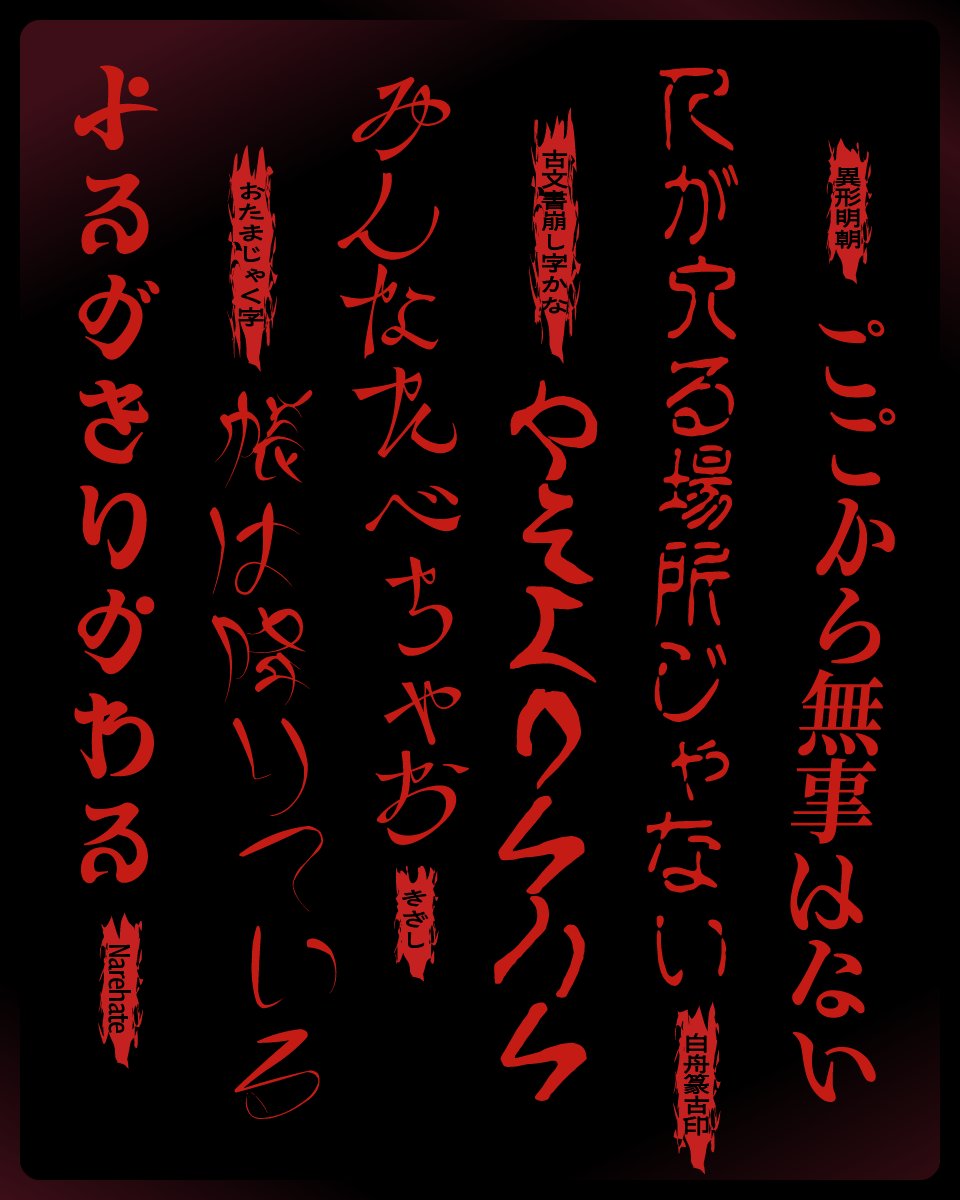 異形明朝
こ゚こ゚から無事はない
が穴る場所じゃない
白舟篆古印
古文書崩し字かな
みんなたべちゃお
きざし
おたまじゃく字
帳は降りている
よるがきりかわる
Narehate